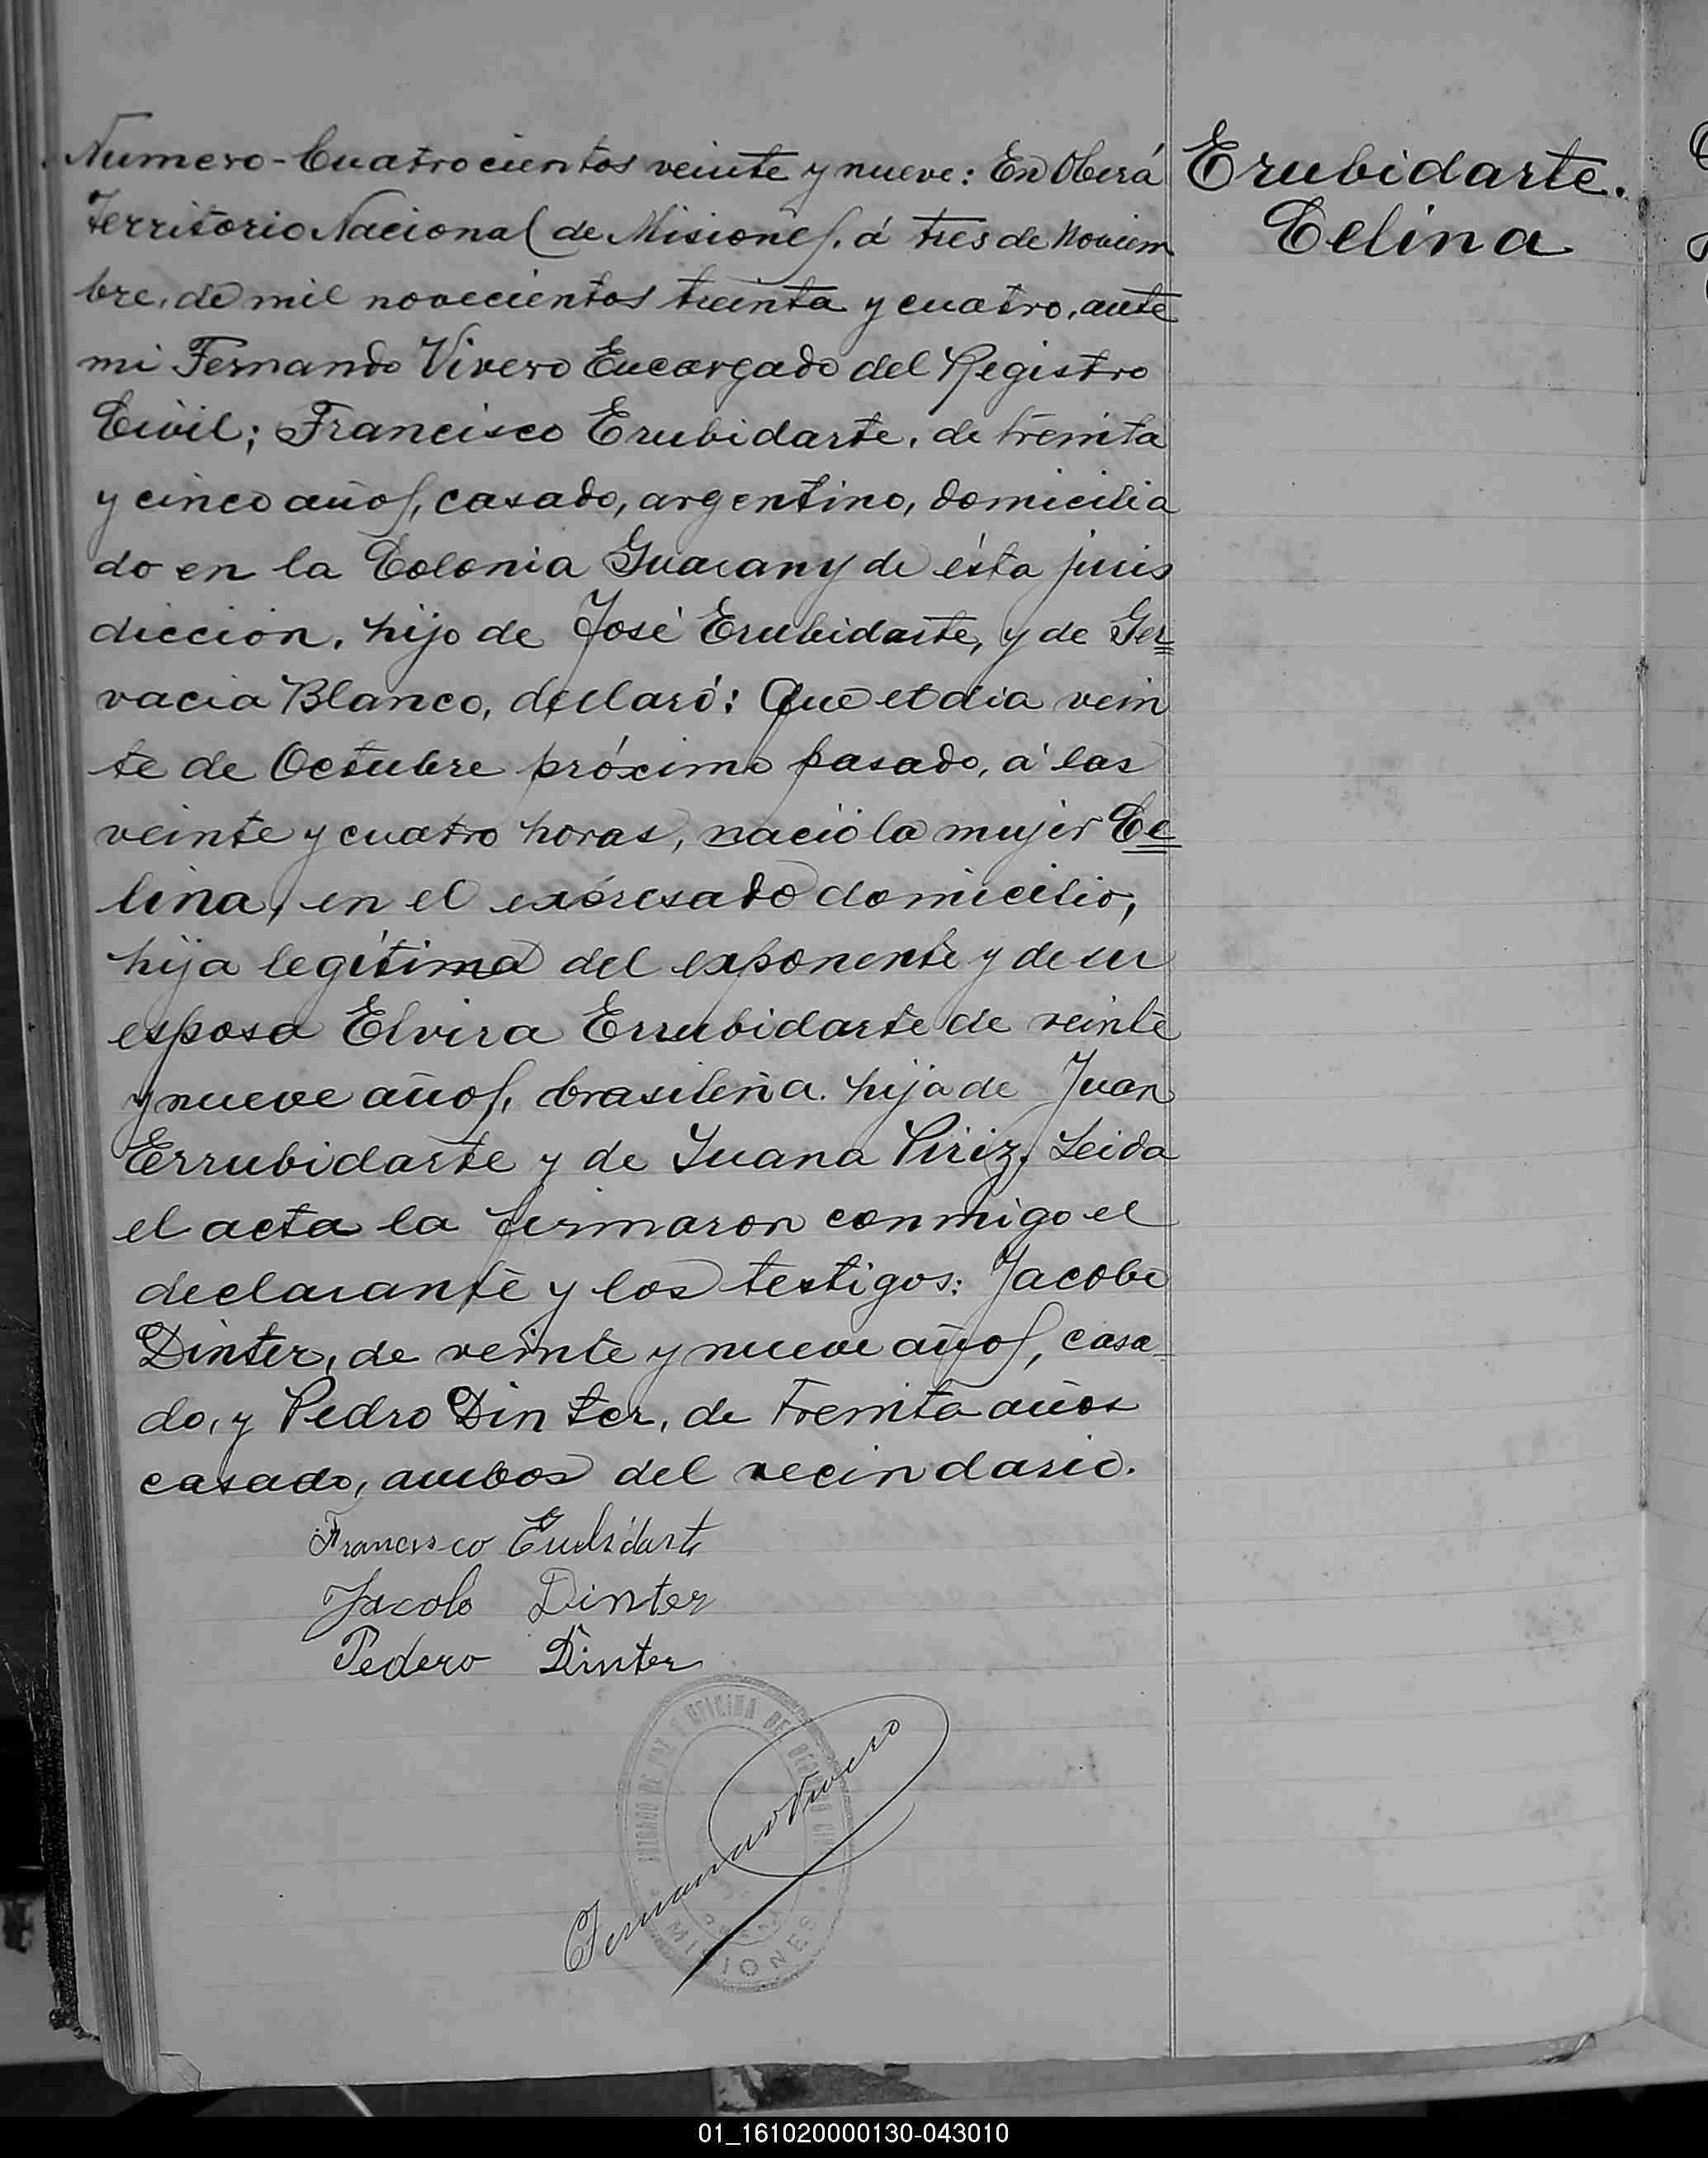 Numero-Cuatrocientos veinte y nueve: En Oberá
Territorio Nacional de Misiones, á tres de Noviem
bre, de mil novecientos treinta y cuatro, ante
mi Fernando Vivero Encargado del Registro
Civil; Francisco Erubidarte, de treinta
y cinco años, casado, argentino, domicilia
do en la Colonia Guarany de ésta juris
dicción, hijo de José Erubidarte, y de Ger
vacia Blanco, declaró: Que el dia vein
te de Octubre próximo pasado, á las
veinte y cuatro horas, nació la mujer Ce
lina, en el expresado domicilio,
hija legítima del exponente y de su
esposa Elvira Errubidarte de veinte
y nueve años, brasileña. hija de Juan
Errubidarte y de Juana Piriz, Leida
el acta la firmaron conmigo el
declarante y los testigos: Jacobo
Dinter, de veinte y nueve años, casa
do, y Pedro Dinter, de treinta años
casado, ambos del vecindario.
Erubidarte.
Celina
Francisco
Jacobo Dinter
Pedero Dinter
JUZGADO DE PAZ Y OFICINA DEL REGISTRO CIVIL
MISIONES
Fernando Vivero
01_161020000130-043010